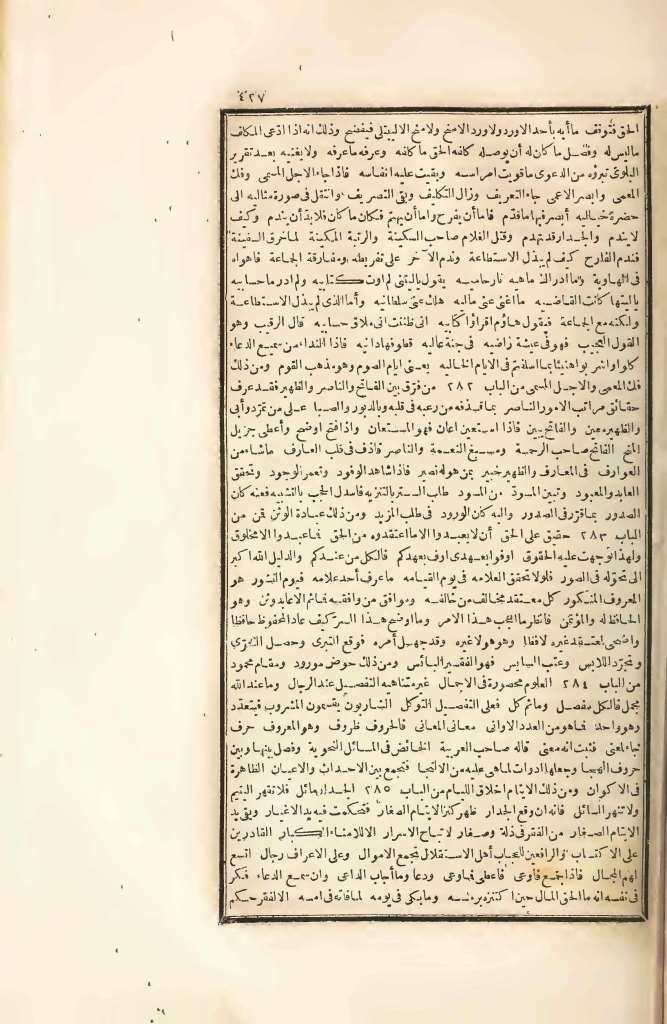 ٤٢٧
الحق فتوقف ما أيه بأحد الاورد ولا ورد الامنح ولا منح الا ليبتلى فيفضح وذلك انه اذا ادعى المكلف
ما ليس له وفصل ما كان له أن يوصله كافه الحق ما كافه وعرفه ما عرفه ولا يغنيه بعد تقرير
البلوى تبرؤه من الدعوى ما قويت امراسه وبقيت عليه انفاسه فاذا جاء الاجل المسمى وفك
المعمى وابصر الاعمى جاء التعريف وزال التكليف وبقى التصريف وانتقل فى صورة مثاليه الى
حضرة خياليه أبصر فيها ما قدم فاما أن يفرح واما أن يهتم فكان ما كان فلا بد أن يندم وكيف
لا يندم والجدار قد تهدم وقتل الغلام صاحب السكينة والرتبة المكينة لما خرق السفينة
فندم الفارح كيف لم يبذل الاستطاعة وندم الآخر على تفريطه ومفارقة الجماعة فاهواه
فى الهاوية وما ادراك ماهيه نار حاميه يقول يا ليتنى لم اوت كتابيه ولم ادر ما حسابيه
يا ليتها كانت القاضيه ما اغنى عنى ماليه هلك عنى سلطانيه وأما الذى لم يبذل الاستطاعة
ولكنه مع الجماعة فيقول هاؤم اقرؤا كتابيه انى ظننت انى ملاق حسابيه قال الرقيب وهو
القول العجيب فهو فى عيشة راضيه فى جنة عاليه قطوفها دانيه فاذا النداء من سميع الدعاء
كلوا واشربوا هنيئا بما اسلفتم فى الايام الخاليه يعنى ايام الصوم وهو مذهب القوم ومن ذلك
فك المعمى والاجل المسمى من الباب ٢٨٢ من فرق بين الفاتح والناصر والظهير فقد عرف
حقائق مراتب الامور الناصر بما قذفه من رعبه فى قلبه وبالدبور والصبا على من تمرد وأبى
والظهير معين والفاتح يبين فاذا استعين اعان فهو المستعان واذا فتح اوضح وأعطى جزيل
المنح الفاتح صاحب الرحمة ومسبغ النعمة والناصر قاذف فى قلب العارف ما شاء من
العوارف فى المعارف والظهير خبير بمن هو له نصير فاذا شاهد الوفود وتعمر الوجود وتحقق
العابد والمعبود وتبين المسود من المسود طالب الستر بالتنزيه فاسدل الحجب بالتشبيه فعنه كان
الصدور بما قرر فى الصدور واليه كان الورود فى طلب المزيد ومن ذلك عبادة الوثن قمن من
الباب ٢٨٣ حقيق على الحق أن لا يعبدوا الا ما اعتقدوه من الحق فما عبدوا الا مخلوق
ولهذا توجهت عليه الحقوق اوفوا بعهدى اوف بعهدكم فالكل من عندكم والدليل الله اكبر
الى تحوله فى الصور فلولا تحقق العلامه فى يوم القيامه ما عرف أحد علامه فيوم النشور هو
المعروف المنكور كل معتقد مخالف من خالفه وموافق من وافقه فما ثم الا عابد وثن وهو
الحافظ له والمؤتمن فانظر ما اعجب هذا الامر وما اوضح هذا السر كيف عاد المحفوظ حافظا
واضحى لمعتقد غيره لافظا وهو هو لا غيره وقد جهل أمره فوقع التبرى وحصل التعرى
وتجرد اللابس وعتب اليابس فهو الفقير البائس ومن ذلك حوض مورود ومقام محمود
من الباب ٢٨٤ العلوم محصورة فى الاجمال غير متناهيه التفصيل عند الرجال وما عند الله
مجمل فالكل مفصل وما ثم كل فعلى التفصيل التوكل الشاربون يقسمون المشروب فيتعدد
وهو واحد فما هو من العدد الاوانى معانى المعانى فالحروف ظروف وهو المعروف حرف
جاء لمعنى فثبت انه معنى قاله صاحب العربية الخائض فى المسائل النحوية وفصل بينها وبين
حروف الهجا وجعلها ادوات لما هى عليه من الالتجا فتجمع بين الاحداث والاعيان الظاهرة
فى الاكوان ومن ذلك الايتام اخلاق اللئام من الباب ٢٨٥ الجدار مائل فلا تقهر اليتيم
ولا تنهر السائل فانه ان وقع الجدار ظهر كنز الايتام الصغار فتحكمت فيه يد الاغيار وبقى يد
الايتام الصغار من الفقر فى ذلة وصغار لا تباح الاسرار الا للامناء الكبار القادرين
على الاكتساب والرافعين للحجاب أهل الاستقلال بجمع الاموال وعلى الاعراف رجال اتسع
لهم المجال فاذا جمع فأوعى فاعطى فما وعى ودعا وما أجاب الداعى وان سمع الدعاء فكر
فى نفسه انه ما لحق المال حين اكتنزه برمسه وما بكى فى يومه لما فاته فى امسه الا لفقر حكم